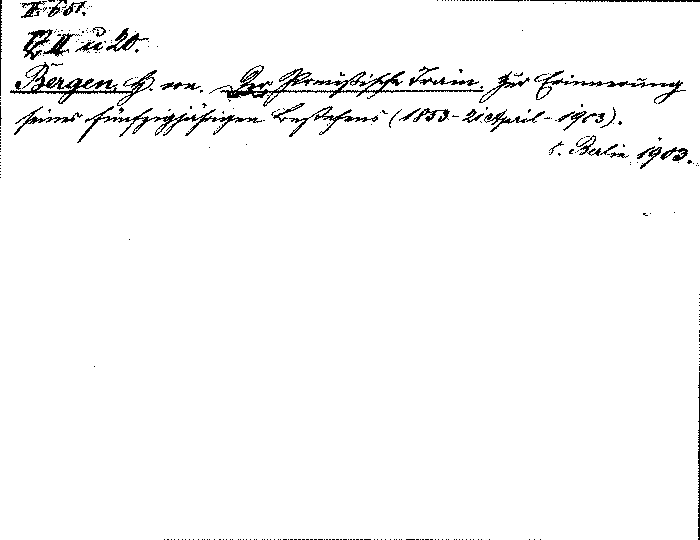 II 651.
II u 20.
Bergen, H. von. Der Preußische Train. Zur Erinnerung
seines fünfzigjährigen Bestehens (1853 - 21 April - 1903).
8. Berlin 1903.